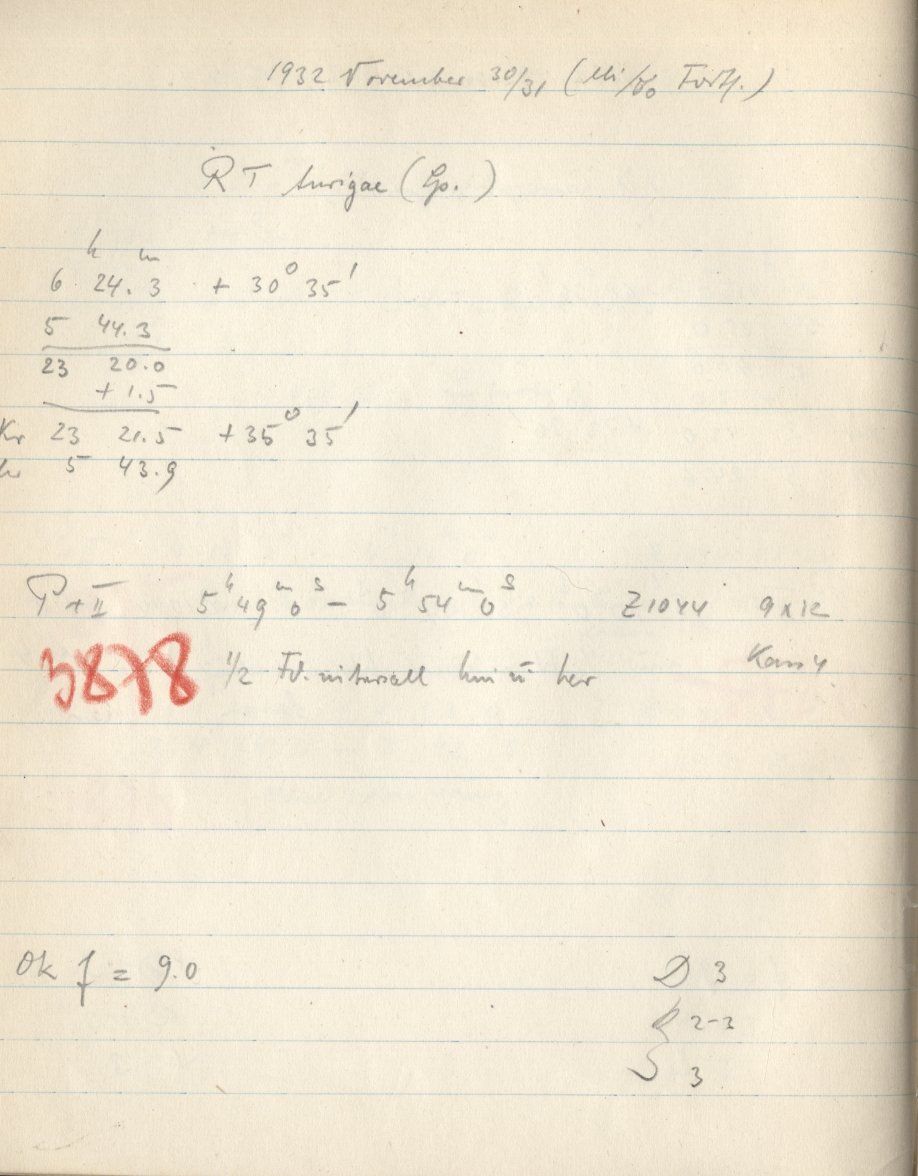 1932 November 30/31 (Mi/Do Forts.)
RT Aurigae (Sp.)
h m
6 24.3 + 30° 35'
5 44.3
23 20.0
+ 1.5
Kr 23 21.5 + 35° 35'
5 43.9
P + II 5h 49m 0s – 5h 54m 0s Z1044 9x12
3878 1/2 Fd. intervall hin u her Kass 4
Ok f = 9.0 D 3
2-3
S 3